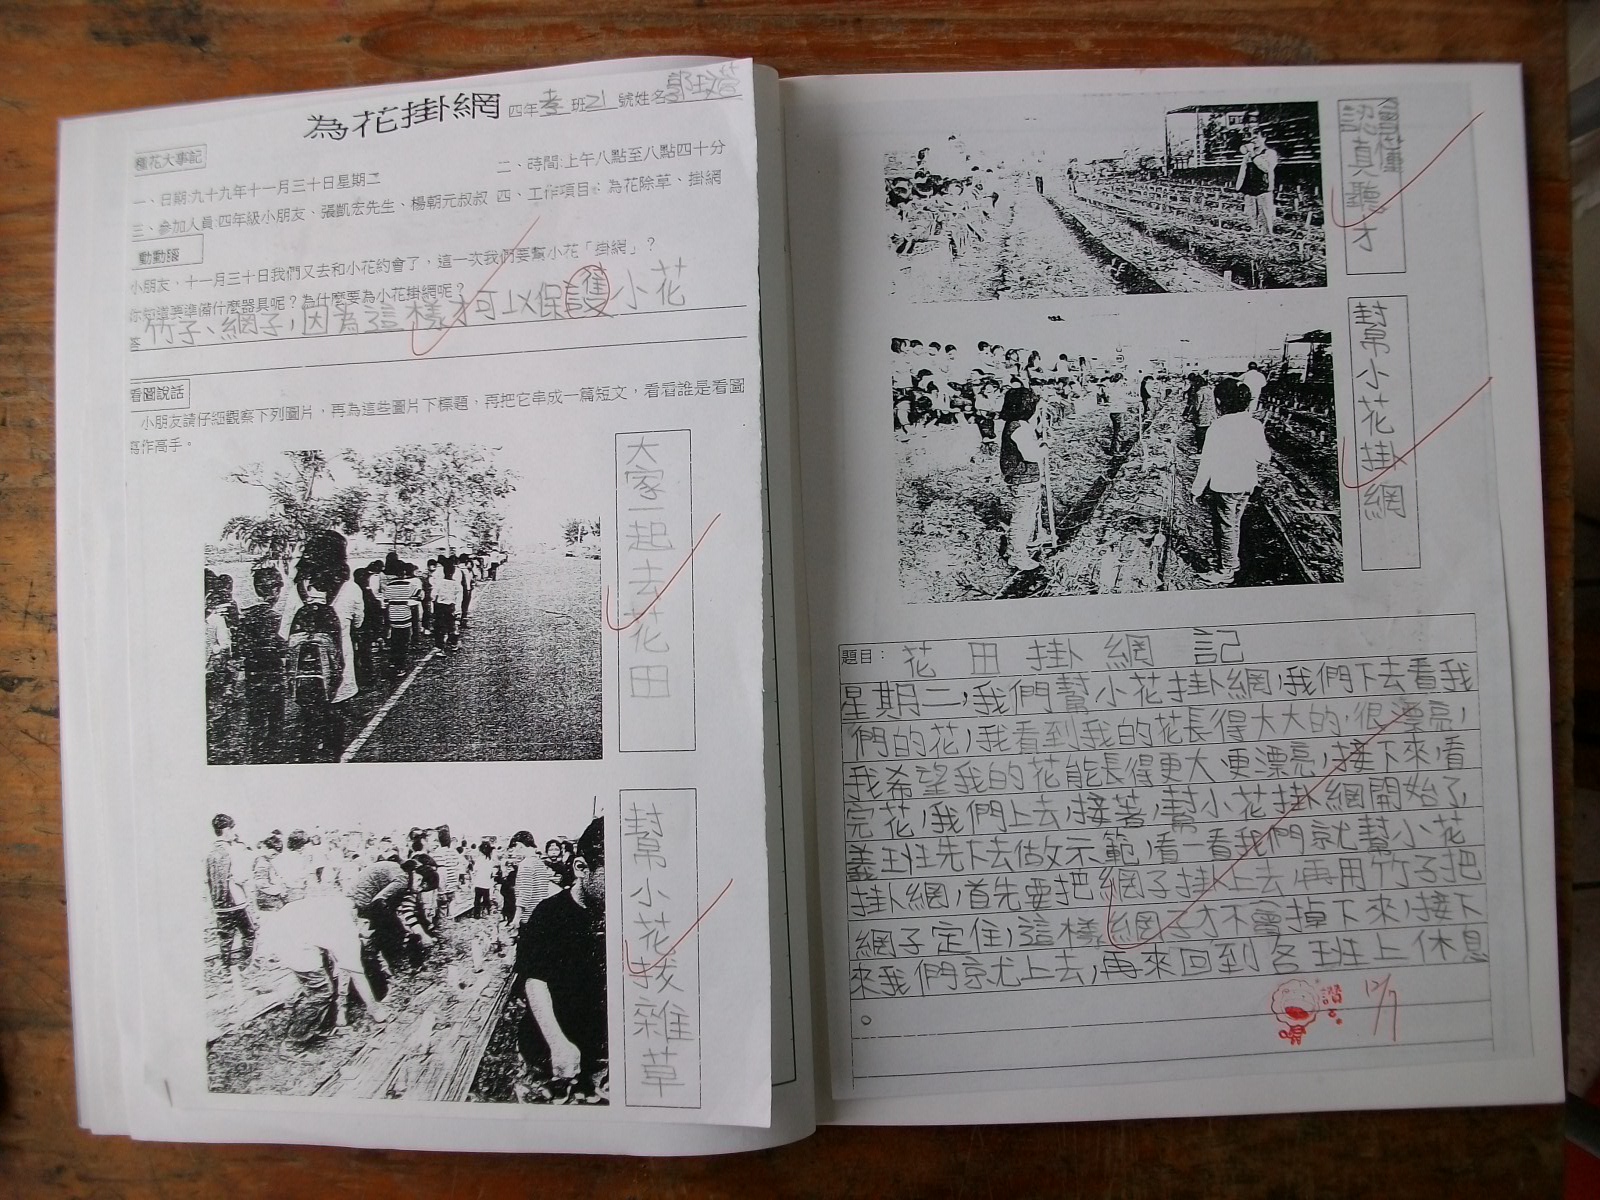 為花掛網 四年孝班21號姓名郭玟萱
種花大事記
一、日期:九十九年十一月三十日星期二
二、時間:上午八點至八點四十分
三、參加人員:四年級小朋友、張凱宏先生、楊朝元叔叔
四、工作項目:為花除草、掛網
動動腦
小朋友,十一月三十日我們又去和小花約會了,這一次我們要幫小花「掛網」?
你知道要準備什麼器具呢?為什麼要為小花掛網呢?
答 竹子、網子,因為這樣才可以保護小花
看圖說話
小朋友請仔細觀察下列圖片,再為這些圖片下標題,再把它串成一篇短文,看看誰是看圖
寫作高手。
大家一起去花田
幫小花拔雜草
認真聽才
會懂
幫小花掛網
題目: 花田掛網記
星期二,我們幫小花掛網,我們下去看我
們的花,我看到我的花長得大大的,很漂亮,
我希望我的花能長得更大,更漂亮,接下來,看
完花,我們上去,接著,幫小花掛網開始了,
義班先下去做示範,看一看我們就幫小花
掛網,首先要把網子掛上去,再用竹子把
網子定住,這樣網子才不會掉下來,接下
來我們就上去,再來回到各班上休息
。
讚
12/7